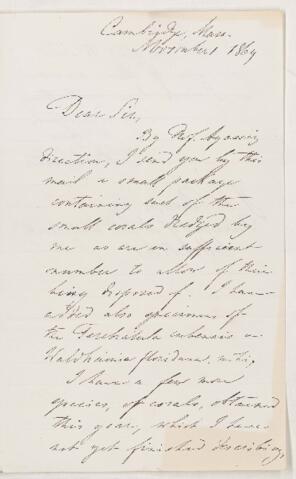 Cambridge, Mass.
November 1 1869
Dear Sir,
By Prof. Agassiz
direction, I send you by this
mail a small package
containing such of the
small corals dredged by
me as are in sufficient
number to allow of their
being disposed of. I have
added also specimens of
the Terebratula cubensis &
Waldheimia floridana, mihi,
I have a few more
species, of corals, obtained
this year, which I have
not yet finished describing,